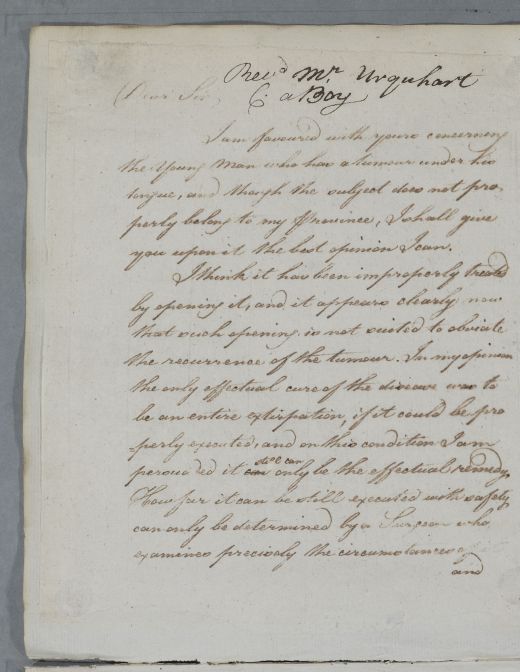 Rev'd Mr Urquhart
C. a Boy
Dear Sir,
I am favoured with yours concerning
the Young Man who has a tumour under his
tongue, and though the subject does not pro-
perly belong to my Province, I shall give
you upon it the best opinion I can.
I think it has been improperly treated
by opening it, and it appears clearly now
that such opening is not suited to obviate
the recurrence of the tumour. In my opinion
the only effectual cure of the disease was to
be an entire extirpation, if it could be pro
perly executed, and on this condition I am
still can
persuaded it can only be the effectual remedy.
How far it can be still executed with safety
can only be determined by a Surgeon who
examines precisely the circumstances
and